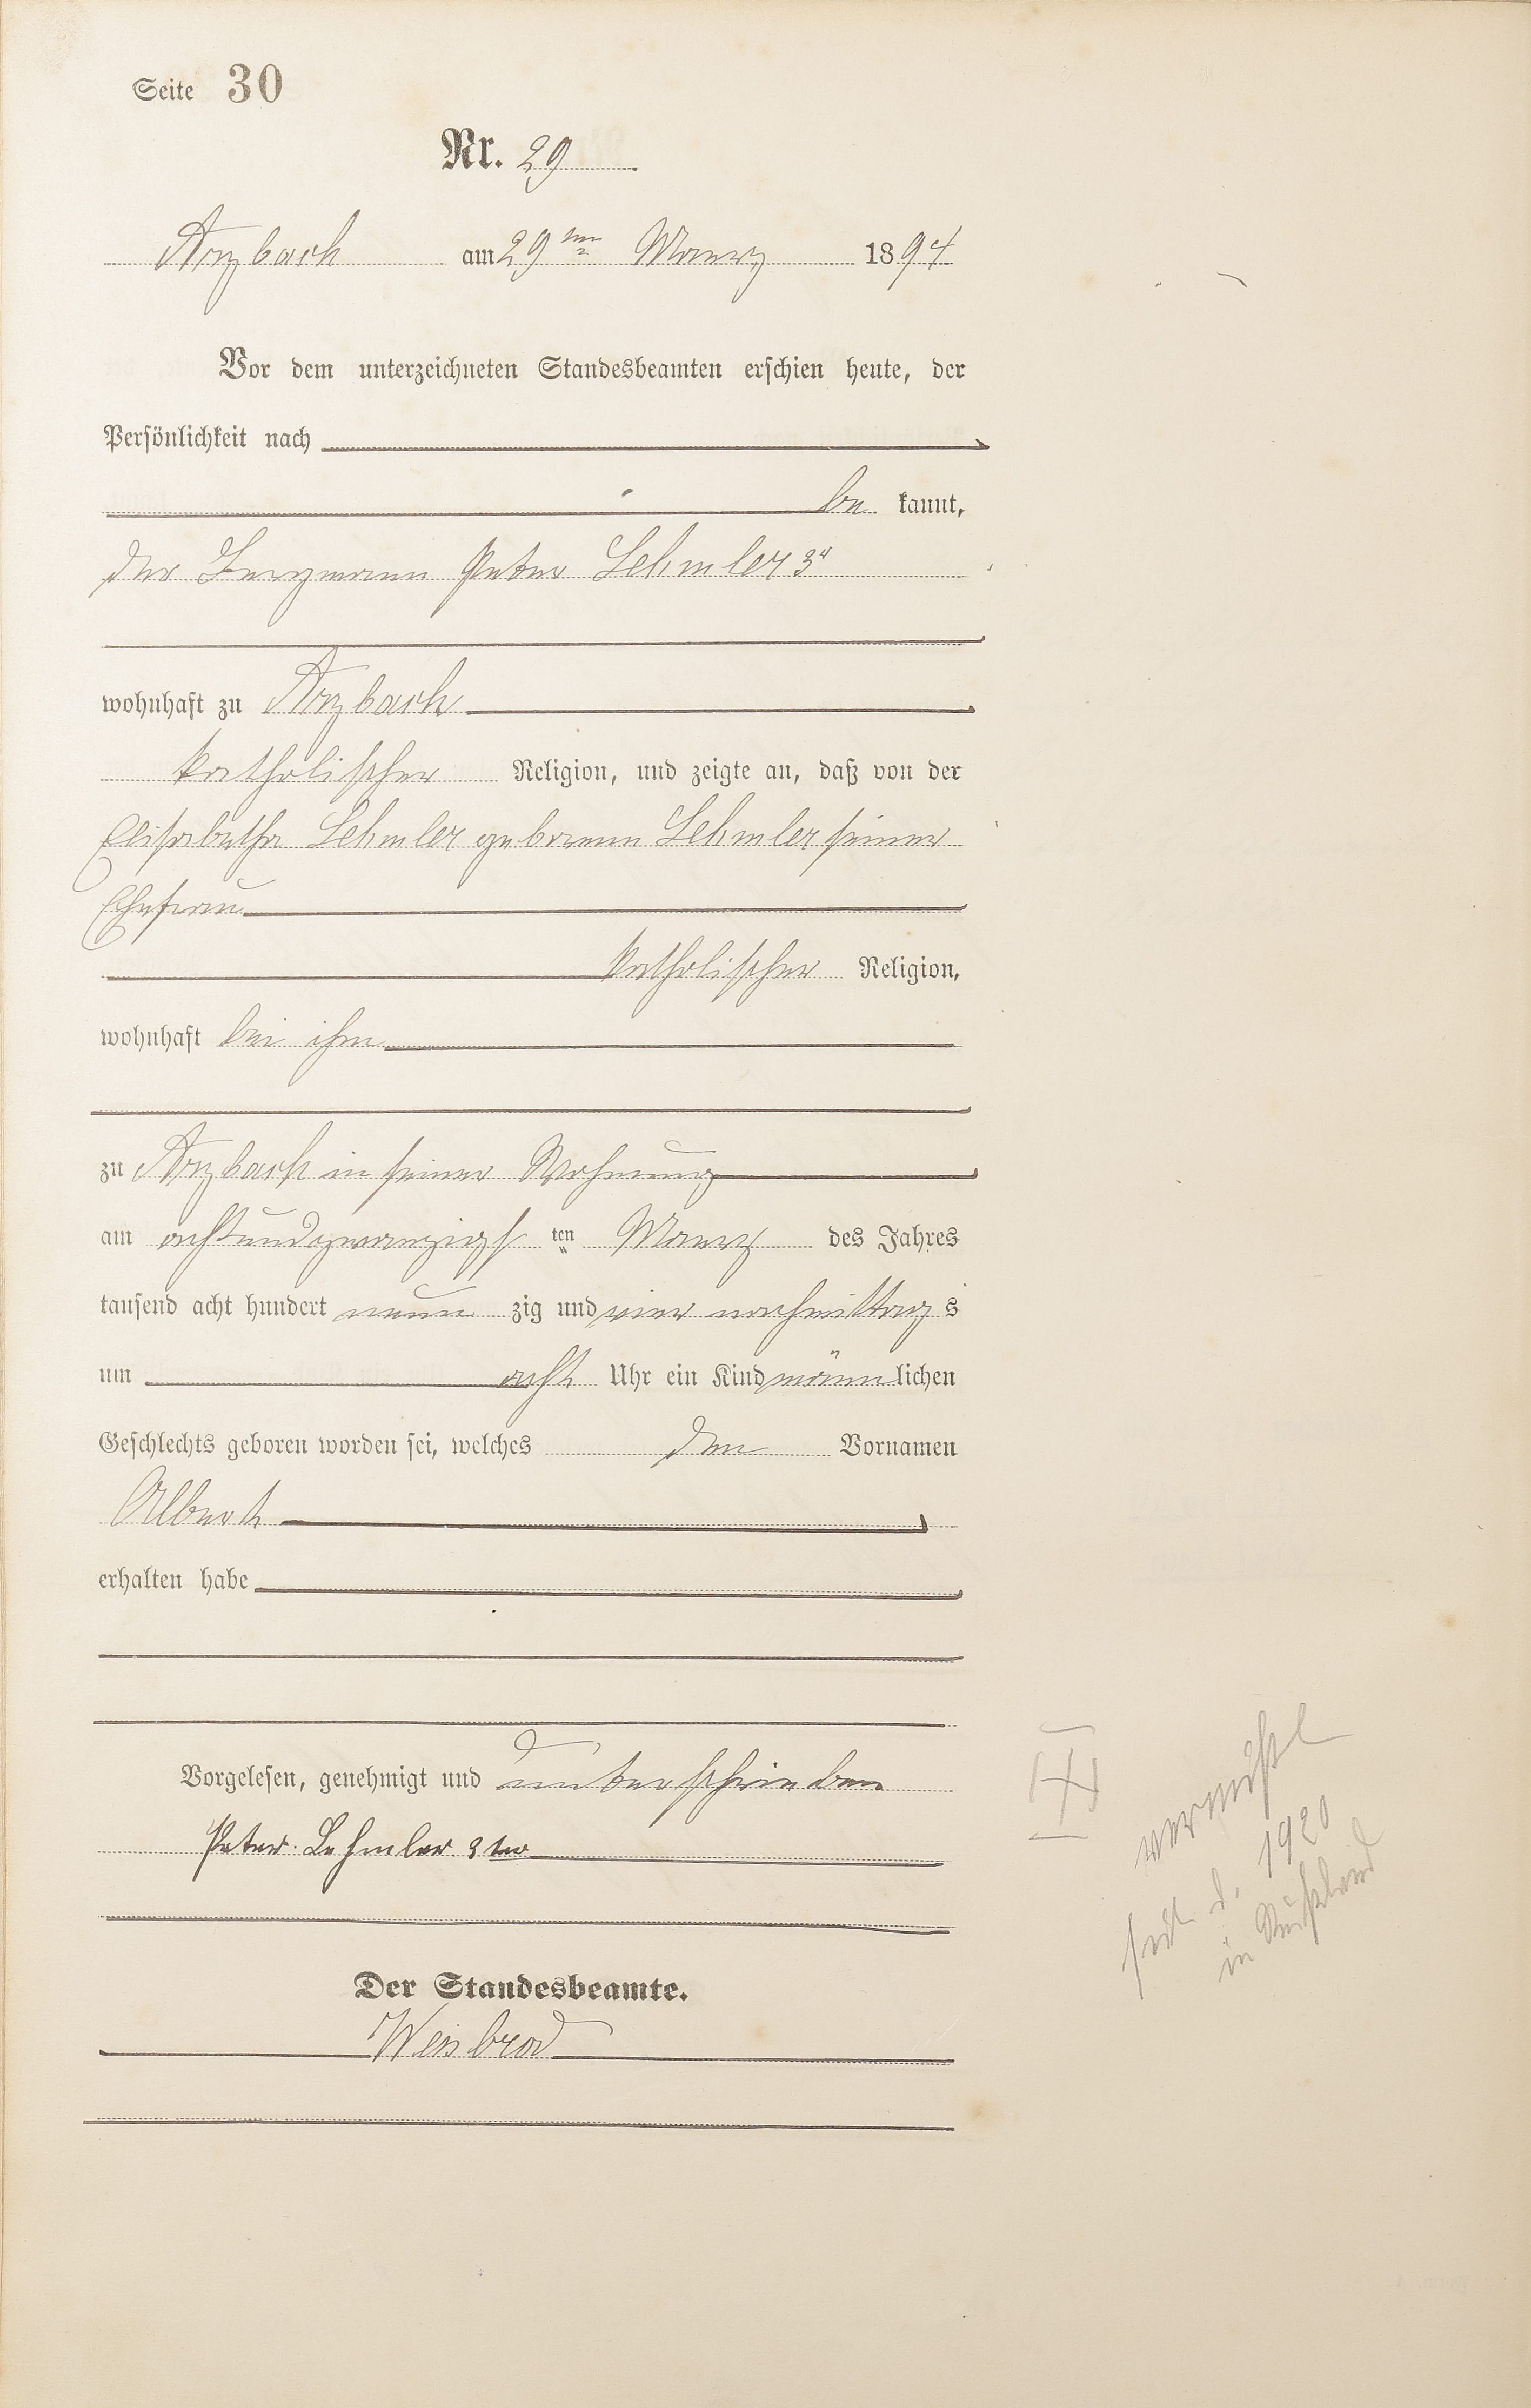 Seite 30
Nr. 29
Arzbach am 29ten Maerz 1894
Vor dem unterzeichneten Standesbeamten erschien heute, der
Persönlichkeit nach
be kannt,
der Bergmann Peter Lehmler 3r
wohnhaft zu Arzbach
katholischer Religion, und zeigte an, daß von der
Elisabetha Lehmler geborenen Lehmler seiner
Ehefrau
katholischer Religion,
wohnhaft bei ihm
zu Arzbach in seiner Wohnung
am achtundzwanzigs ten Maerz des Jahres
tausend acht hundert neun zig und vier nachmittags
um acht Uhr ein Kind männlichen
Geschlechts geboren worden sei, welches den Vornamen
Albert
erhalten habe
Vorgelesen, genehmigt und unterschrieben
Peter Lehmler 3ter
Der Standesbeamte.
Weisbrod
vermißt
seit d. 1920
in Rußland